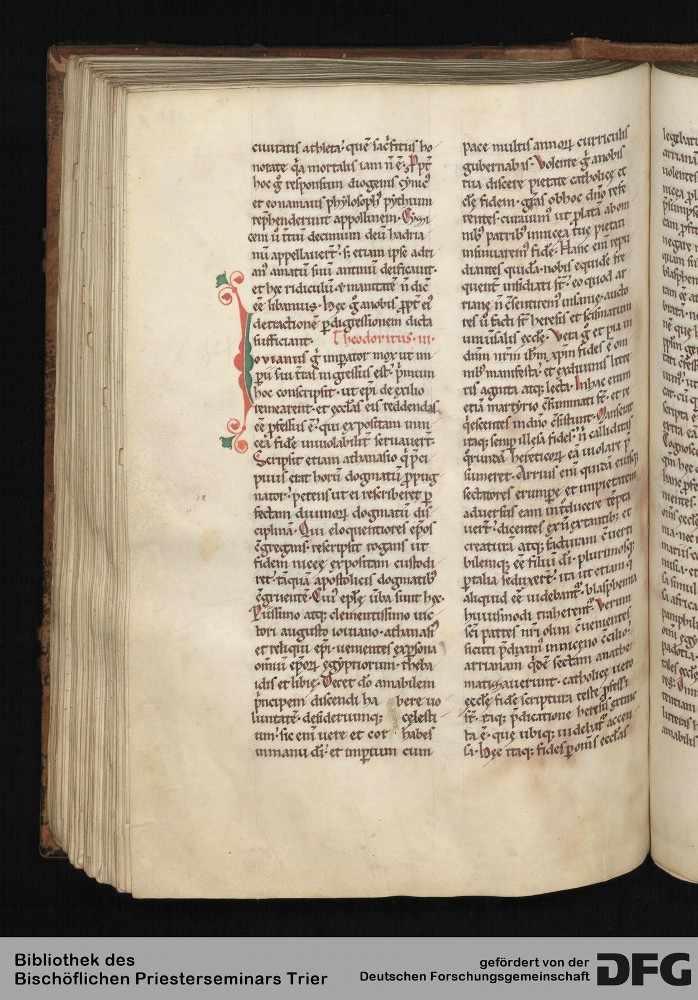 ciuitatis athleta· quē sacͥficiis ho
norate q̓a mortalis iam n̄ ē· Ppt̄
hoc ḡ responsum diogenis cynic᷒
et eonamaus phylosoph᷒ pythium
rep̄henderunt appollinem· Cyzi
cem ū t̄tiū decimum deū hadria
nū appellauer̄t· s; etiam ipse adri
an᷒ amatū suū antinū deificauit·
et hęc ridiculū· ⁊ uanitatē n̄ dic̄
eē libanius· Hęc ḡ anobis ꝓpt̄ ei᷒
detractionē ꝑ digressionem dicta
sufficiant· Theodoritus· iii·
Iouianus ḡ imꝑator mox ut im
ꝑiū suū t̄tal ingressus est· p̓mum
hoc conscripsit· ut ep̄i de exilio
remearent· et ęcclas eis reddendas
eē ꝓfessus ē· qui expositam inni
cea fidē inuiolabilit̄ seruauer̄t·
Scripsit etiam athanasio q̓ p̓ci
puus erat horū dogmatū ꝓpug
nator· petens ut ei rescriberet ꝑ
fectam diuinoꝝ dogmatū dis
ciplinā· Qui eloquentiores ep̄os
c̄gregans· rescripsit rogans ut
fidem niceę expositam custodi
ret· tāquā apostolicis dogmatib᷒
c̄gruentē· Cui᷒ ep̄lę ūba sunt hęc·
Piissimo atq; clementissimo uic
tori augusto iouiano· athanasi᷒
et reliqui ep̄i· uenientes ex ꝑsona
omniū ep̄oꝝ egyptiorum· theba
idis et libię· Decet d̄o amabilem
p̓ncipem discendi ha bere uo
luntatē· desideriumq; cęlesti
um· sic eni uere et cor habes
inmanu dī· et imꝑium cum
pace multis annoꝝ curriculis
gubernabis· Volente ḡ anobis
tua discere pietate catholicę ęc
clę fidem· gr̄as obhoc dn̄o refe
rentes· curauim᷒ ut p̄lata abom
nib᷒ patrib᷒ innicea tuę pietati
insinuarem᷒ fidē· Hanc eni repu
diantes quidā· nobis equidē fre
quent̄ insidiati st̄· eo quod ar
rianę n̄ c̄sentirem᷒ insanię· aucto
res ū facti st̄ heresis et scismatum
uniūsalis ęcclę· Vera ḡ et pia in
dn̄m nr̄m ih̄m xp̄m fides ē om
nib᷒ manifesta· et exdiuinis litte
ris agnita atq; lecta· Inhac enim
etiā martyrio c̄sūmati st̄· et re
q̓escentes indn̄o c̄sistunt· Mansetat
itaq; semp illesa fides· n̄ calliditas
q̓rundā hereticoꝝ eā uiolare p̄
sumeret· Arrius eni quidā eiusq;
sectatores erumpe et impietatem
aduersus eam int̄ducere tēpta
uer̄t· dicentes exn̄ extantib᷒ et
creaturā atq; facturam c̄uerti
bilemq; eē filiū dī· plurimosq;
ꝑ talia seduxer̄t· ita ut etiam q̓
aliquid eē uidebant᷑· blasphemia
huiusmodi traherent᷑· Verum
sc̄i patres nr̄i olim c̄uenientes
sicuti p̄dixim᷒ inniceno c̄cilio·
arrianam q̓dē sectam anathe
matizauerunt· catholicę uero
ęcclę fidē scriptura teste ꝓfessi
st̄· itaq; p̄dicatione heresis extinc
ta ē· quę ubiq; uidebat᷑ accen
sa· Hęc itaq; fides ꝑ om̄s ecclas
Bibliothek des
Bischöflichen Priesterseminars Trier
gefördert von der
Deutschen Forschungsgemeinschaft
DFG